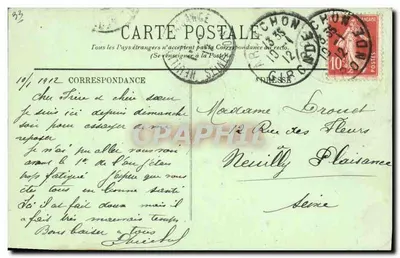 93
CARTE POSTALE
Tous les Pays étrangers n'acceptent pas la Correspondance au recto.
(Se renseigner à la Poste)
ARCACHON
13 35
12
GIRONDE
10
10/1 1912 CORRESPONDANCE
ADRESSE
cher Frère et chère sœur
Je suis ici depuis dimanche
soir pour essayer
reposer
Je n'ai pu aller vous voir
avant le 1er de l'an j'étais
trop fatigué J'espère que vous
êtes tous en bonne santé
Ici il fait doux mais il
a fait très mauvais temps
Bons baisers à tous
Madame Drouet
12 Rue des Fleurs
Neuilly Plaisance
Seine
CPAPHIL